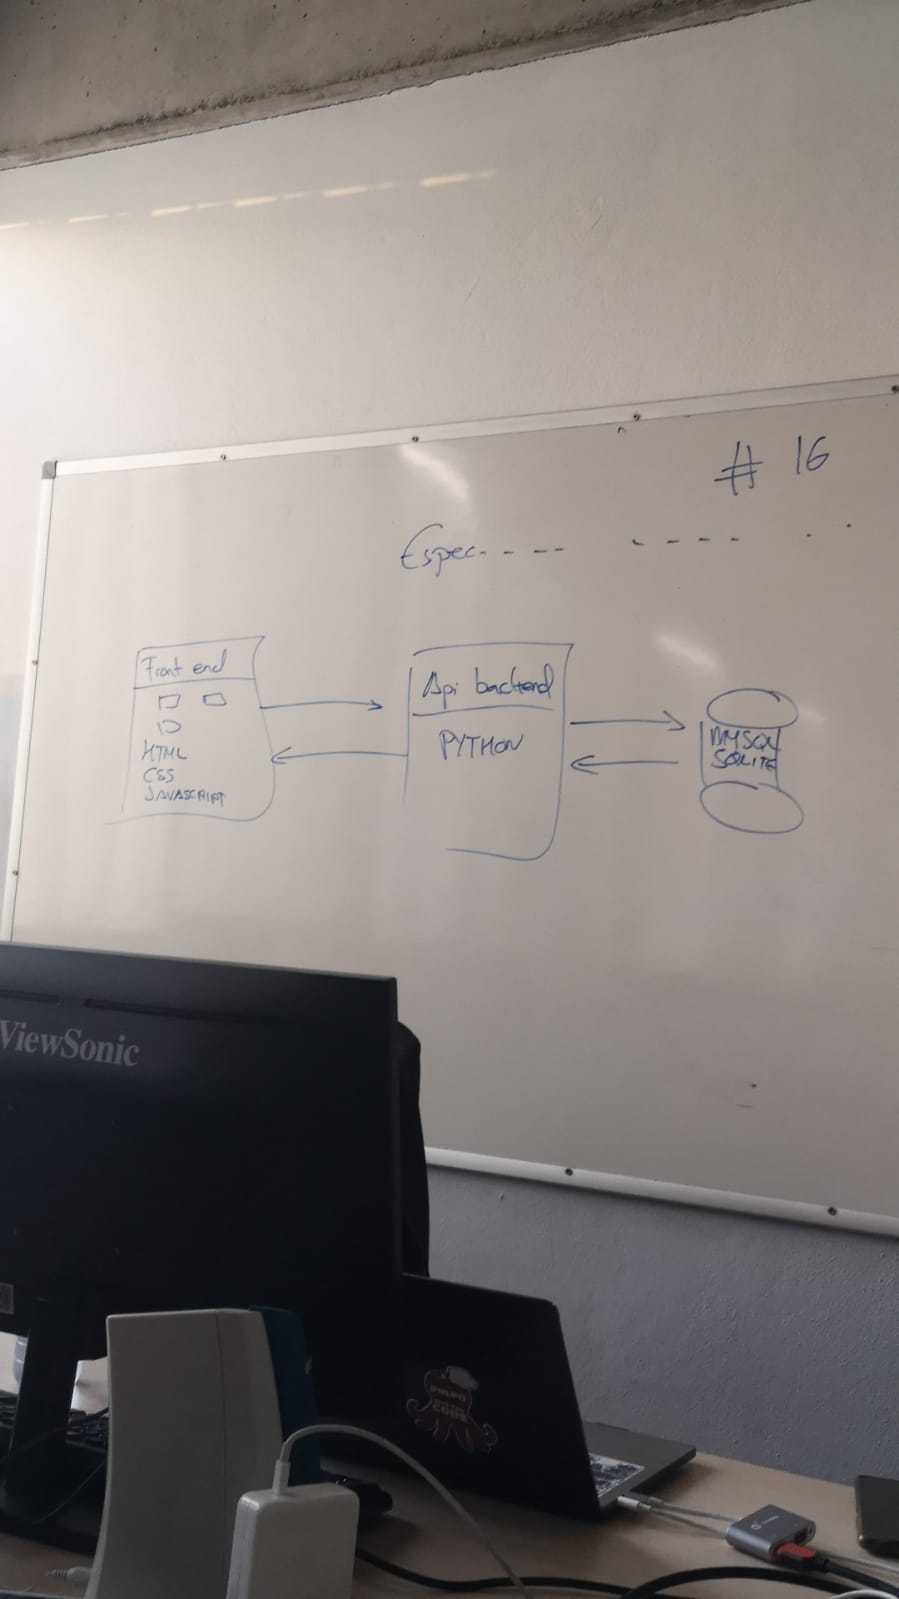 # 16
Espec---- ---- ..
Front end
HTML
CSS
JAVASCRIPT
Api backend
PYTHON
MYSQL
SQLITE
ViewSonic
PULPO
CODE